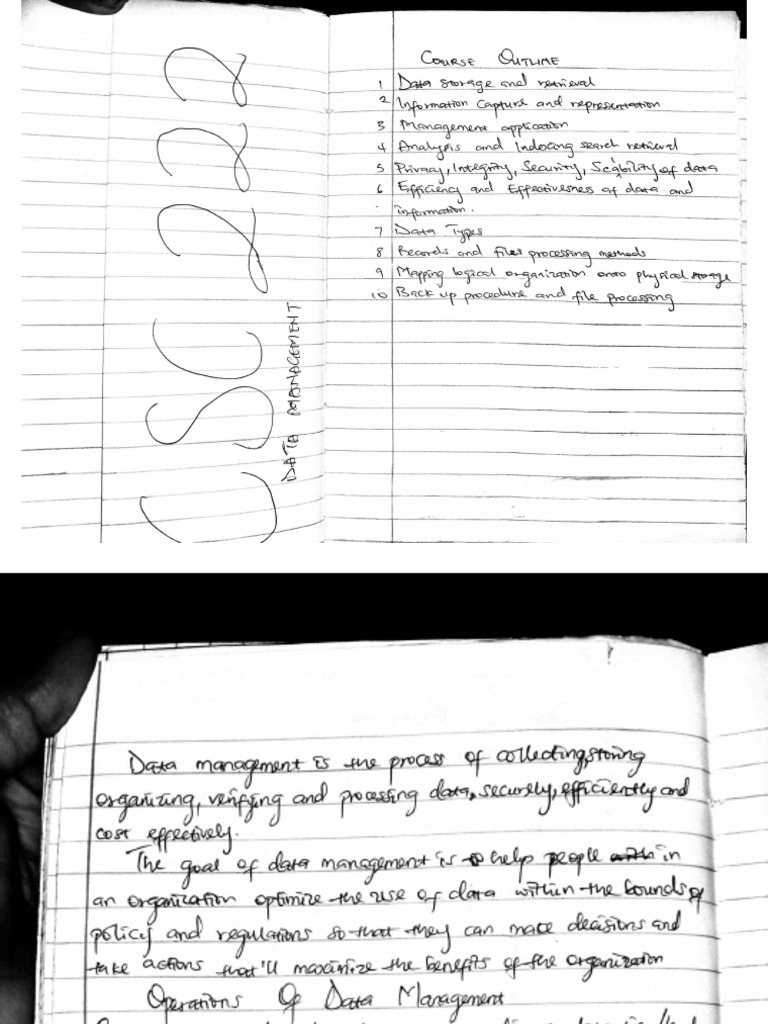 CSC 222
DATA MANAGEMENT
COURSE OUTLINE
1 Data storage and retrieval
2 Information Capture and representation
3 Management application
4 Analysis and Indexing search retrieval
5 Privacy, Integrity, Security, Scability of data
6 Efficiency and Effectiveness of data and
information.
7 Data Types
8 Records and files processing methods
9 Mapping logical organization onto physical storage
10 Back up procedure and file processing
Data management is the process of collecting, storing
organizing, verifying and processing data, securely, efficiently and
cost effectively.
The goal of data management is to help people with in
an organization optimize the use of data within the bounds of
policy and regulations so that they can make decisions and
take actions that'll maximize the benefits of the organization
Operations Of Data Management